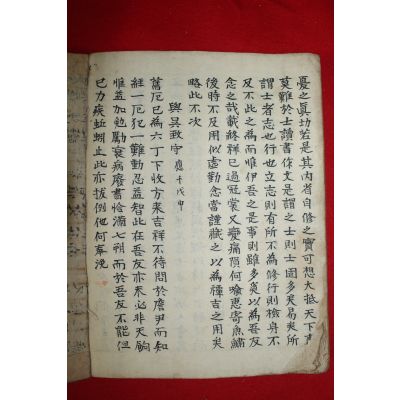 憂之眞切若是其內省自修之實可想大抵天下事
莫難於士讀書作文是謂之士則士固多矣易矣所
謂士者志也行也立志則有所不為修行則檢身不
及不此之為而惟伊吾之是事則雖多奚以為吾友
念之哉載終祥已過冠裳又變痛隕何喩惠寄魚鱐
後時不及用似虛勤念當謹藏之以為禫吉之用矣
略此不次
與吳致守 應千戊申
舊厄已為六丁下收方來吉祥不待問於詹尹而知
經一厄犯一難動忍益智此在吾友亦未必非天餉
惟益加勉勵衰病廢書恰滿七朔而於吾友不能但
已力疾蚯蚓止此亦拔例他何奉浼